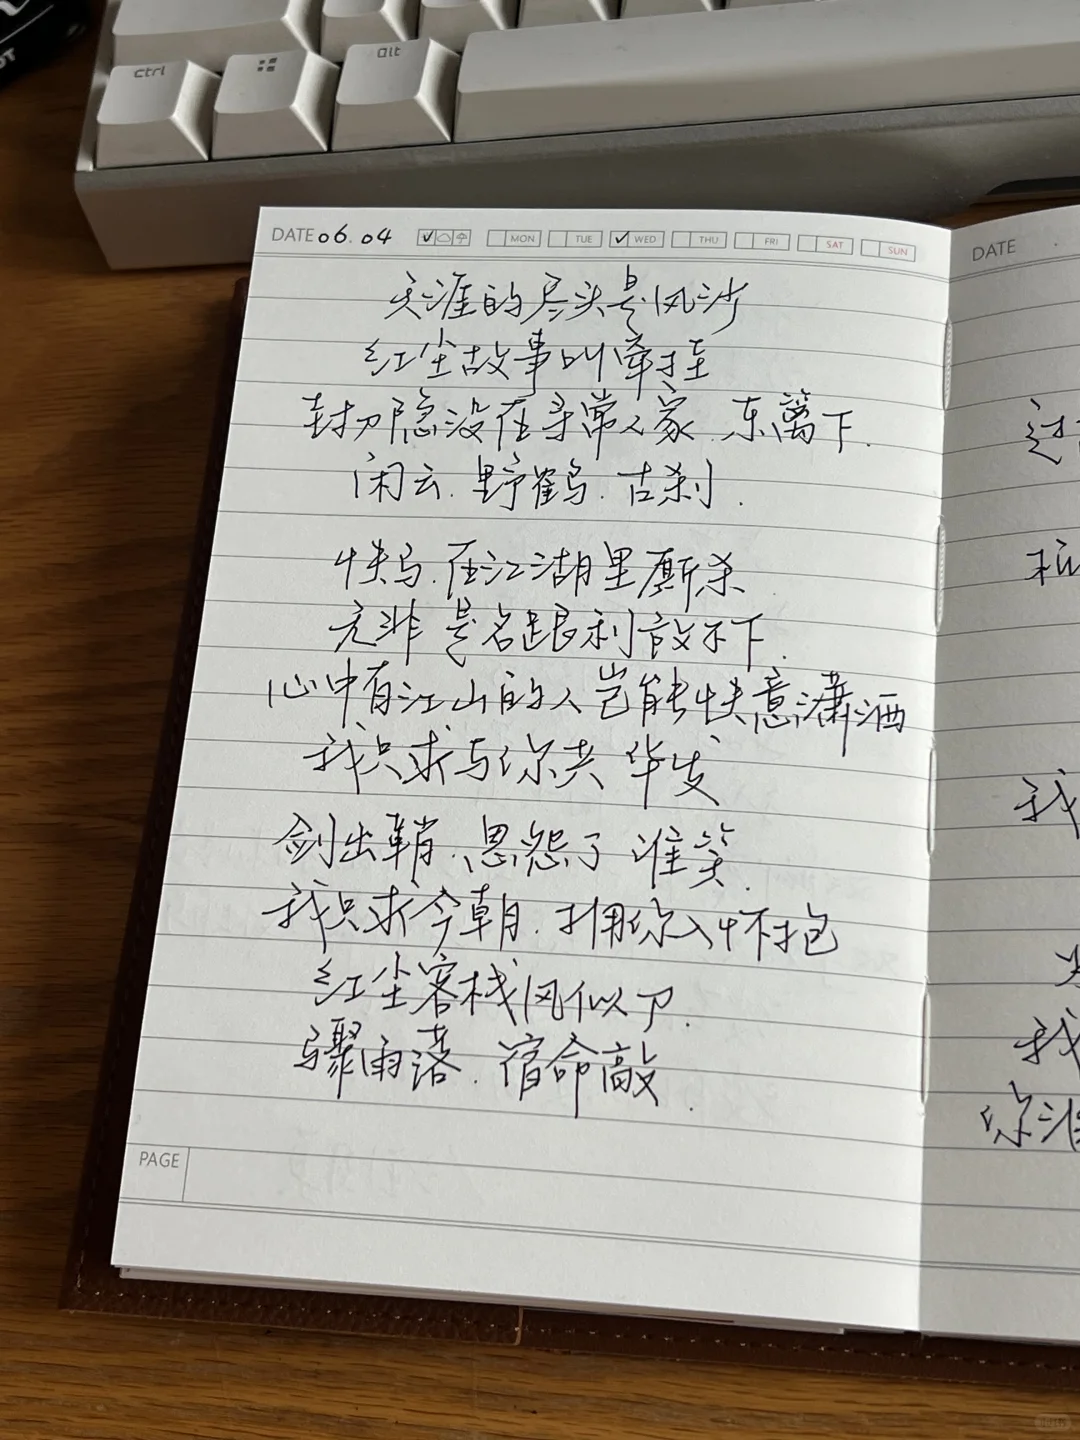 ctrl
alt
DATE 06.04 MON TUE WED THU FRI SAT SUN
天涯的尽头是风沙
红尘故事叫牵挂
封刀隐没在寻常人家.东篱下.
闲云.野鹤.古刹.
快马.在江湖里厮杀
无非是名跟利放不下.
心中有江山的人岂能快意潇洒
我只求与你共华发
剑出鞘.恩怨了 谁笑.
我只求今朝.拥你入怀抱
红尘客栈风似刀.
骤雨落.宿命敲.
PAGE
DATE
过
我
我
你